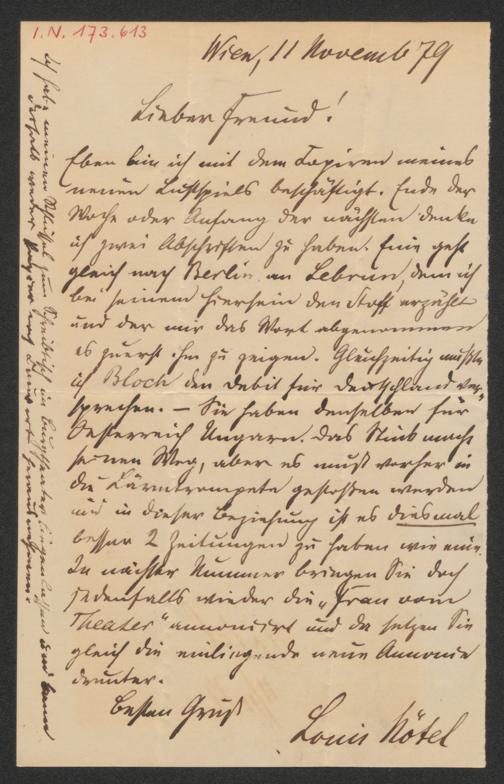 I.N. 173.613
Wien, 11 Novemb 79
Lieber Freund!
Eben bin ich mit dem Copiren meines
neuen Lustspiels beschäftigt. Ende der
Woche oder Anfang der nächsten denke
ich zwei Abschriften zu haben. Eine geht
gleich nach Berlin an Lebrun, dem ich
bei seinem Hiersein den Stoff erzählte
und der mir das Wort abgenommen
es zuerst ihm zu zeigen. Gleichzeitig mußte
ich Bloch den Debit für Deutschland ver-
sprechen. — Sie haben denselben für
Oesterreich Ungarn. Das Stück macht
seinen Weg, aber es muß vorher in
die Lärmtrompete gestoßen werden
und in dieser Beziehung ist es diesmal
besser 2 Zeitungen zu haben wie eine.
In nächster Nummer bringen Sie doch
jedenfalls wieder die „Frau vom
Theater" annoncirt und da setzen Sie
gleich die einliegende neue Annonce
drunter.
Besten Gruß
Louis Nötel
Ich habe meinen Schlüssel zum Schreibtisch im Burgtheater liegen lassen und kann
deshalb weder